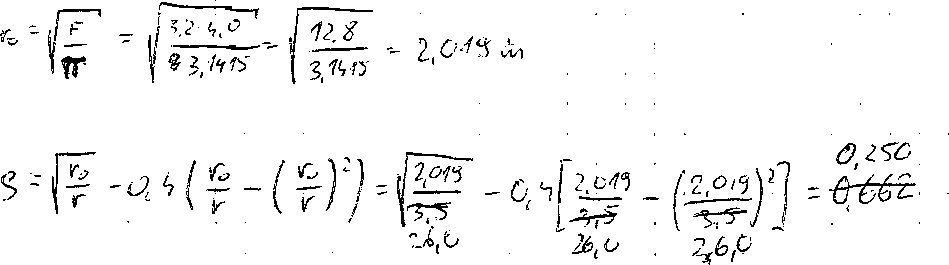 r₀ = √(F/π) = √(3,2·4,0/3,1415) = √(12,8/3,1415) = 2,019 m
S = √(r₀/r) - 0,4 (r₀/r - (r₀/r)²) = √(2,019/26,0) - 0,4 [2,019/26,0 - (2,019/26,0)²] = 0,250